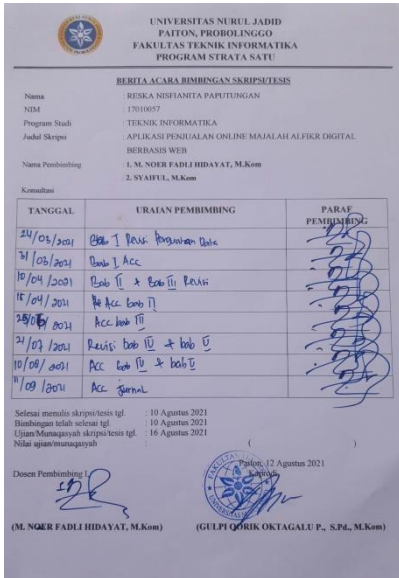 UNIVERSITAS NURUL JADID
PAITON, PROBOLINGGO
FAKULTAS TEKNIK INFORMATIKA
PROGRAM STRATA SATU
BERITA ACARA BIMBINGAN SKRIPSI/TESIS
Nama : RESKA NISFIANITA PAPUTUNGAN
NIM : 17010057
Program Studi : TEKNIK INFORMATIKA
Judul Skripsi : APLIKASI PENJUALAN ONLINE MAJALAH ALFIKR DIGITAL
BERBASIS WEB
Nama Pembimbing : 1. M. NOER FADLI HIDAYAT, M.Kom
: 2. SYAIFUL, M.Kom
Konsultasi
TANGGAL URAIAN PEMBIMBING PARAF
PEMBIMBING
24/03/2021 Bab I Revisi Data
31/03/2021 Bab I Acc
10/04/2021 Bab II + Bab III Revisi
18/04/2021 Acc bab II
2021 Acc bab III
21/07/2021 Revisi bab IV + bab V
10/08/2021 Acc bab IV + bab V
11/09/2021 Acc Jurnal
Selesai menulis skripsi/tesis tgl. : 10 Agustus 2021
Bimbingan telah selesai tgl. : 10 Agustus 2021
Ujian/Munaqasyah skripsi/tesis tgl. : 16 Agustus 2021
Nilai ujian/munaqasyah : ( )
Paiton, 12 Agustus 2021
Dosen Pembimbing I, Kaprodi,
(M. NOER FADLI HIDAYAT, M.Kom) (GULPI QORIK OKTAGALU P., S.Pd., M.Kom)